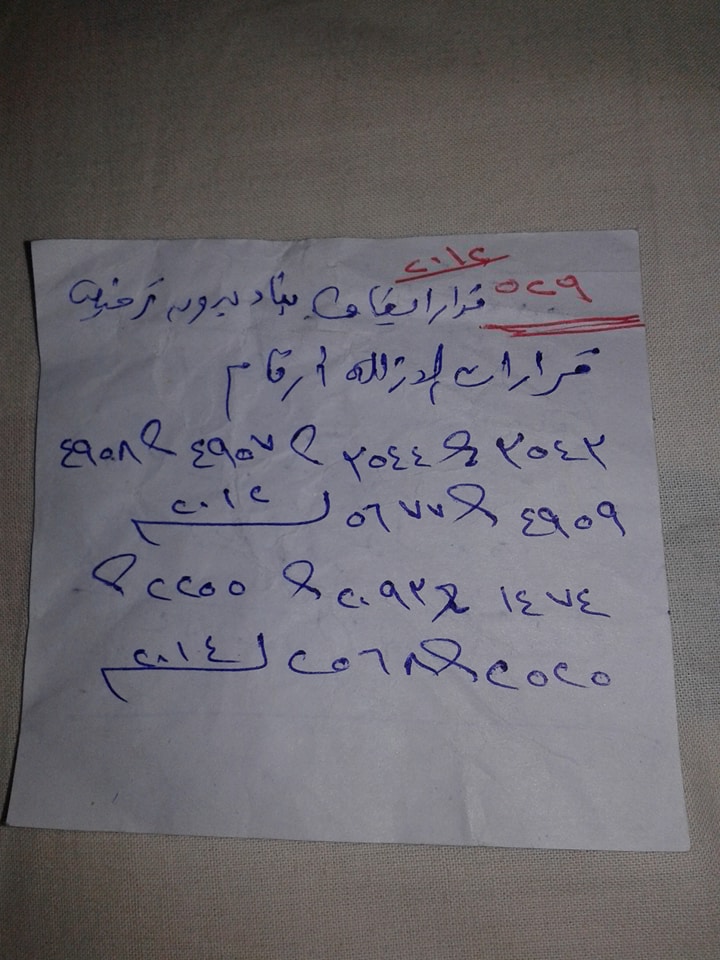 ٢٠١٢
٥٢٩ قرار ايقاف بناء بدون ترخيص
قرارات إزاله أرقام
٣٥٤٣ & ٣٥٤٤ & ٤٩٥٧ & ٤٩٥٨
٤٩٥٩ & ٥٦٧٧ لسنة ٢٠١٢
١٤٧٤ & ٢٠٩٣ & ٢٢٥٥ &
٢٥٢٥ & ٢٥٦٨ لسنة ٢٠١٤